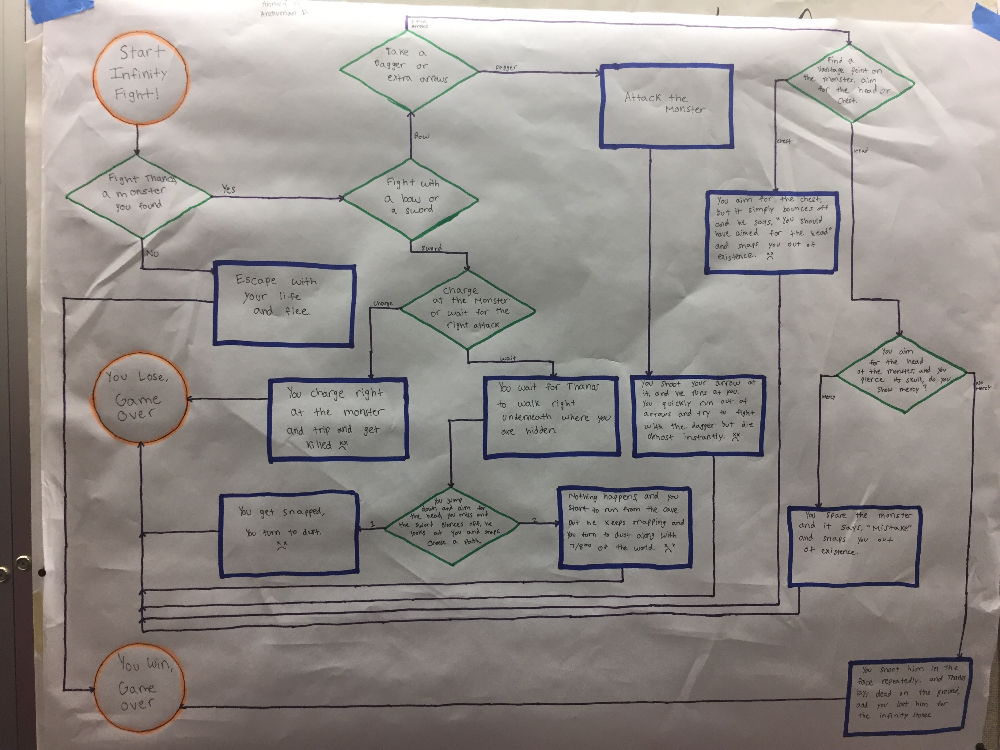 Start
Infinity
Fight!
Fight Thanos,
a monster
you found
Yes
No
Fight with
a bow or
a sword
Bow
Sword
Take a
Dagger or
extra arrows
Dagger
arrows
Attack the
Monster
Find a
vantage point on
the monster, aim
for the head or
chest.
chest
head
You aim for the chest,
but it simply bounces off
and he says, "You should
have aimed for the head"
and snaps you out of
existence.
Escape with
your life
and flee
charge
at the Monster
or wait for the
right attack
charge
wait
You aim
for the head
of the monster, and you
pierce its skull, do you
show mercy?
Mercy
No
Mercy
You Lose,
Game
over
You charge right
at the monster
and trip and get
killed xx
You wait for Thanos
to walk right
underneath where you
are hidden.
You shoot your arrow at
it, and he runs at you.
You quickly run out of
arrows and try to fight
with the dagger but die
almost instantly. xx
You get snapped,
You turn to dust.
xx
You jump
down and aim for
the head, you miss and
the sword glances off, he
looks at you and snaps
Choose a Path.
1
2
Nothing happens, and you
start to run from the cave
but he keeps snapping and
you turn to dust along with
of the world. xx
You spare the monster
and it says, "Mistake"
and snaps you out
of existence.
You Win,
Game
over
You shoot him in the
face repeatedly, and Thanos
lays dead on the ground,
and you loot him for
the infinity stones